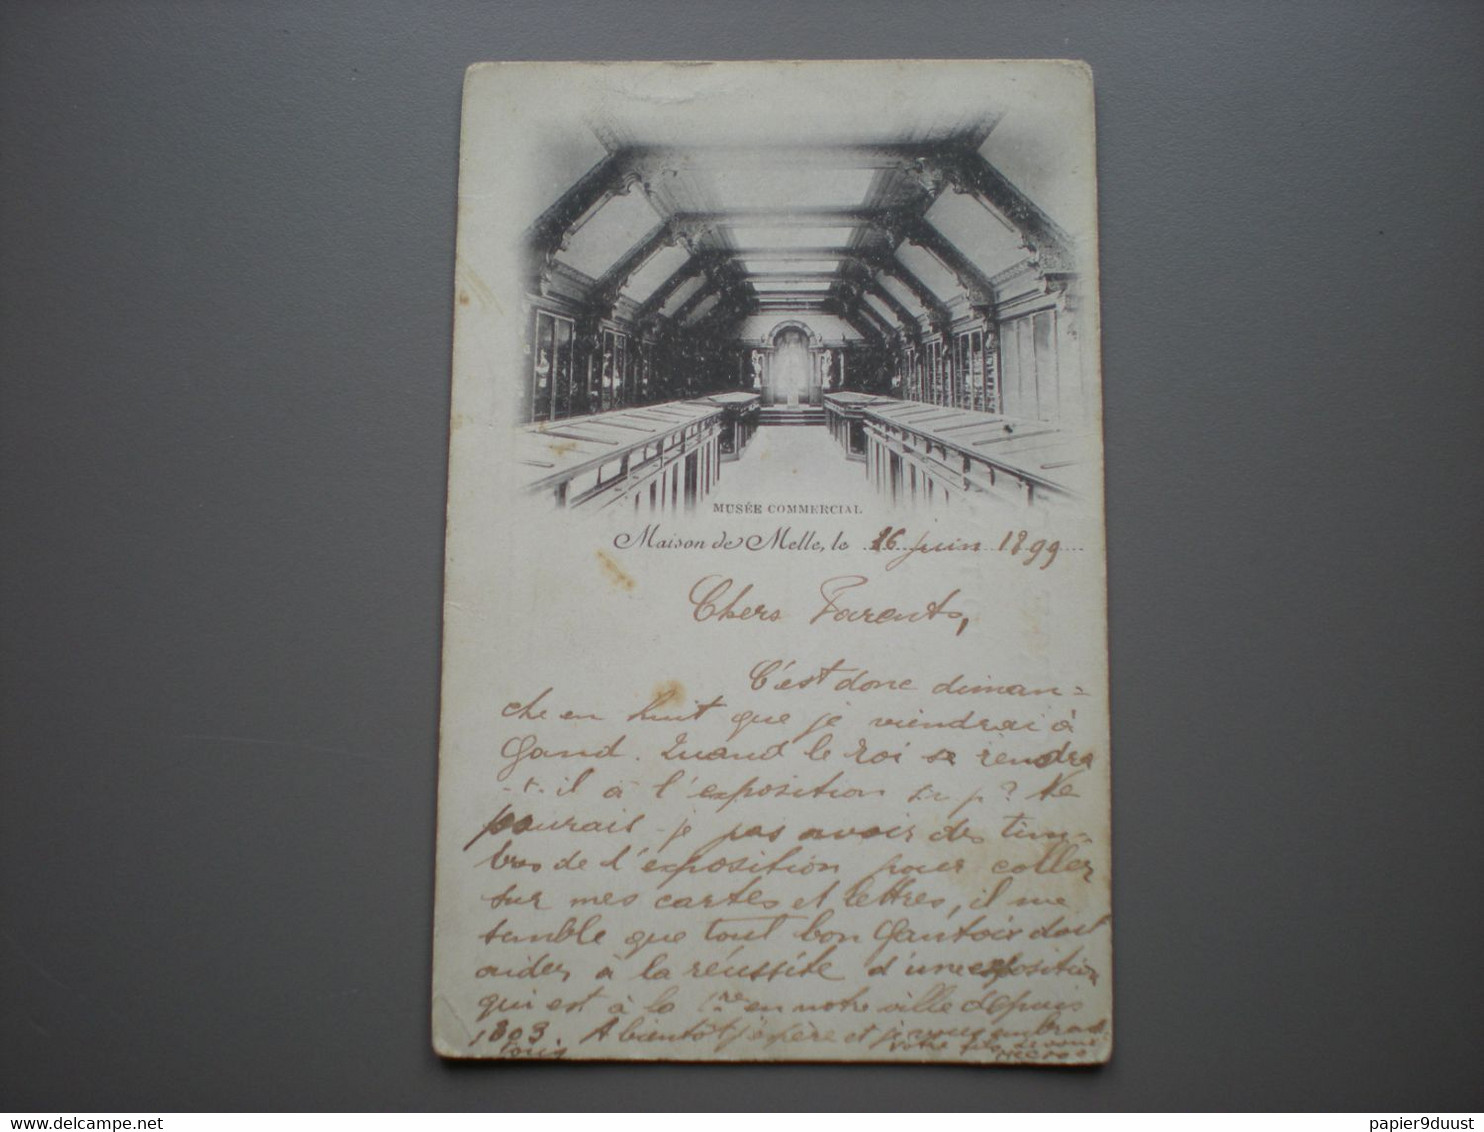 MUSÉE COMMERCIAL
Maison de Melle, le 16 juin 1899
Chers Parents,
C'est donc diman=
che en huit que je viendrai à
Gand. Quand le roi se rendra
-t-il à l'exposition s.v.p? Ne
pourais-je pas avoir des tim-
bres de l'exposition pour coller
sur mes cartes et lettres, il me
semble que tout bon Gantois doit
aider à la réussite d'une exposition
qui est à la 1re en notre ville depuis
1803. A bientôt j'espère et je vous embrasse
Votre fils dévoué
papier9duust